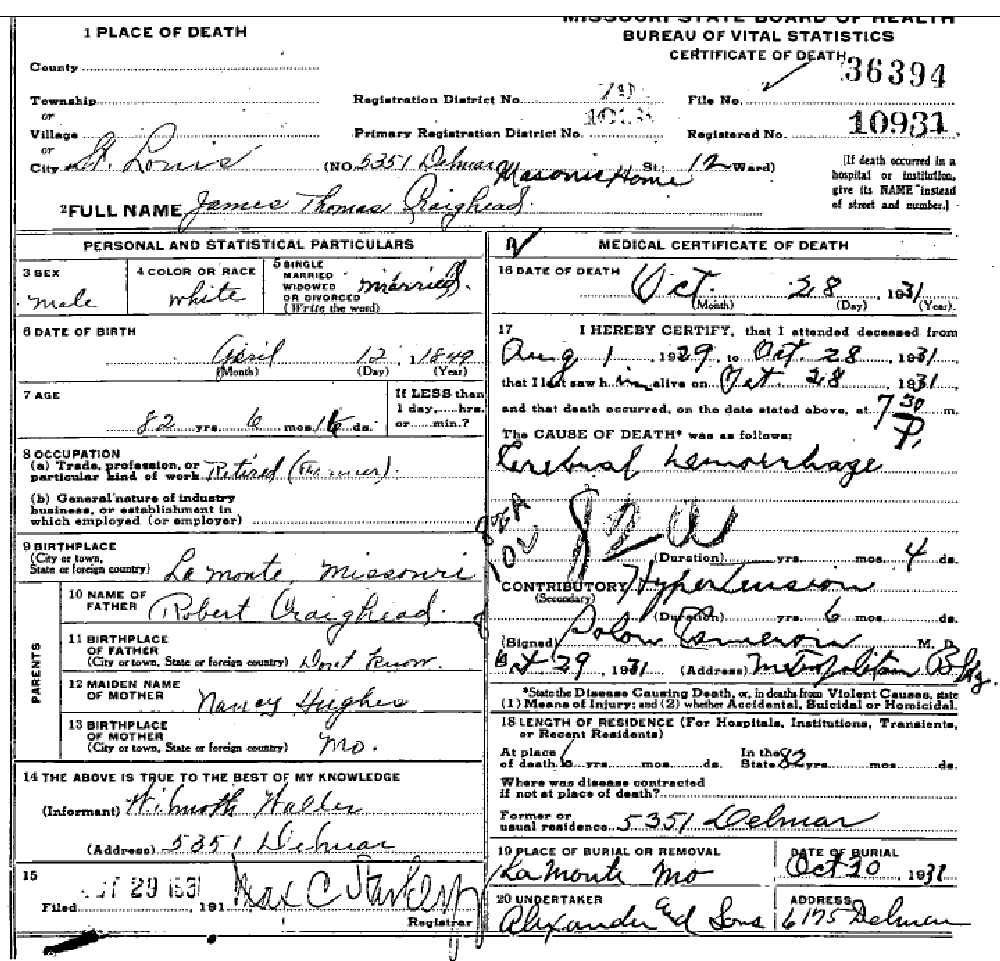 MISSOURI STATE BOARD OF HEALTH
BUREAU OF VITAL STATISTICS
CERTIFICATE OF DEATH
1 PLACE OF DEATH
County
Township
or
Village
or
City St. Louis
Registration District No.
Primary Registration District No.
(NO. 5351 Delmar Masonic Home St; 12 Ward)
File No. 36394
Registered No. 10931
(If death occurred in a
hospital or institution,
give its NAME instead
of street and number.)
2 FULL NAME James Thomas Craighead
PERSONAL AND STATISTICAL PARTICULARS
3 SEX
male
4 COLOR OR RACE
white
5 SINGLE
MARRIED
WIDOWED
OR DIVORCED
(Write the word)
married
6 DATE OF BIRTH
April 12, 1849
(Month) (Day) (Year)
7 AGE
82 yrs. 6 mos. 16 ds.
If LESS than
1 day,....hrs.
or.....min.?
8 OCCUPATION
(a) Trade, profession, or
particular kind of work Retired
(b) General nature of industry
business, or establishment in
which employed (or employer)
9 BIRTHPLACE
(City or town,
State or foreign country) La Monte, Missouri
PARENTS
10 NAME OF
FATHER Robert Craighead
11 BIRTHPLACE
OF FATHER
(City or town, State or foreign country) Dont know.
12 MAIDEN NAME
OF MOTHER Nancy Hughes
13 BIRTHPLACE
OF MOTHER
(City or town, State or foreign country) Mo.
14 THE ABOVE IS TRUE TO THE BEST OF MY KNOWLEDGE
(Informant) Wilmoth Waller
(Address) 5351 Delmar
15
Filed OCT 29 1931, 191 Max C Starkloff
Registrar
MEDICAL CERTIFICATE OF DEATH
16 DATE OF DEATH
Oct. 28, 1931
(Month) (Day) (Year)
17 I HEREBY CERTIFY, that I attended deceased from
Aug 1, 1929, to Oct. 28, 1931
that I last saw him alive on Oct. 28, 1931
and that death occurred, on the date stated above, at 7 30 P. m.
The CAUSE OF DEATH* was as follows:
Cerebral hemorrhage
82A
102
(Duration) yrs. mos. 4 ds.
CONTRIBUTORY Hypertension
(Secondary)
(Duration) yrs. 6 mos. ds.
(Signed) Solon Cameron M. D.
Oct 29, 1931 (Address) Metropolitan Bldg.
*State the Disease Causing Death, or, in deaths from Violent Causes, state
(1) Means of Injury; and (2) whether Accidental, Suicidal or Homicidal.
18 LENGTH OF RESIDENCE (For Hospitals, Institutions, Transients,
or Recent Residents)
At place
of death 6 yrs. mos. ds.
In the
State 82 yrs. mos. ds.
Where was disease contracted
if not at place of death?
Former or
usual residence 5351 Delmar
19 PLACE OF BURIAL OR REMOVAL
La Monte Mo
DATE OF BURIAL
Oct 30 1931
20 UNDERTAKER
Alexander and Sons
ADDRESS
6175 Delmar